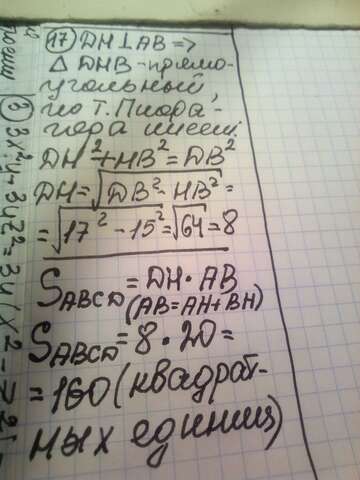 17) DH⊥AB =>
△ DHB - прямо-
угольный,
по т. Пифа-
гора имеем:
DH² + HB² = DB²
DH = √DB² - HB² =
= √17² - 15² = √64 = 8
S ABCD = DH · AB
(AB = AH + BH)
S ABCD = 8 · 20 =
= 160 (квадрат-
ных единиц)
3x²y - 3yz² = 3y(x² - z²)